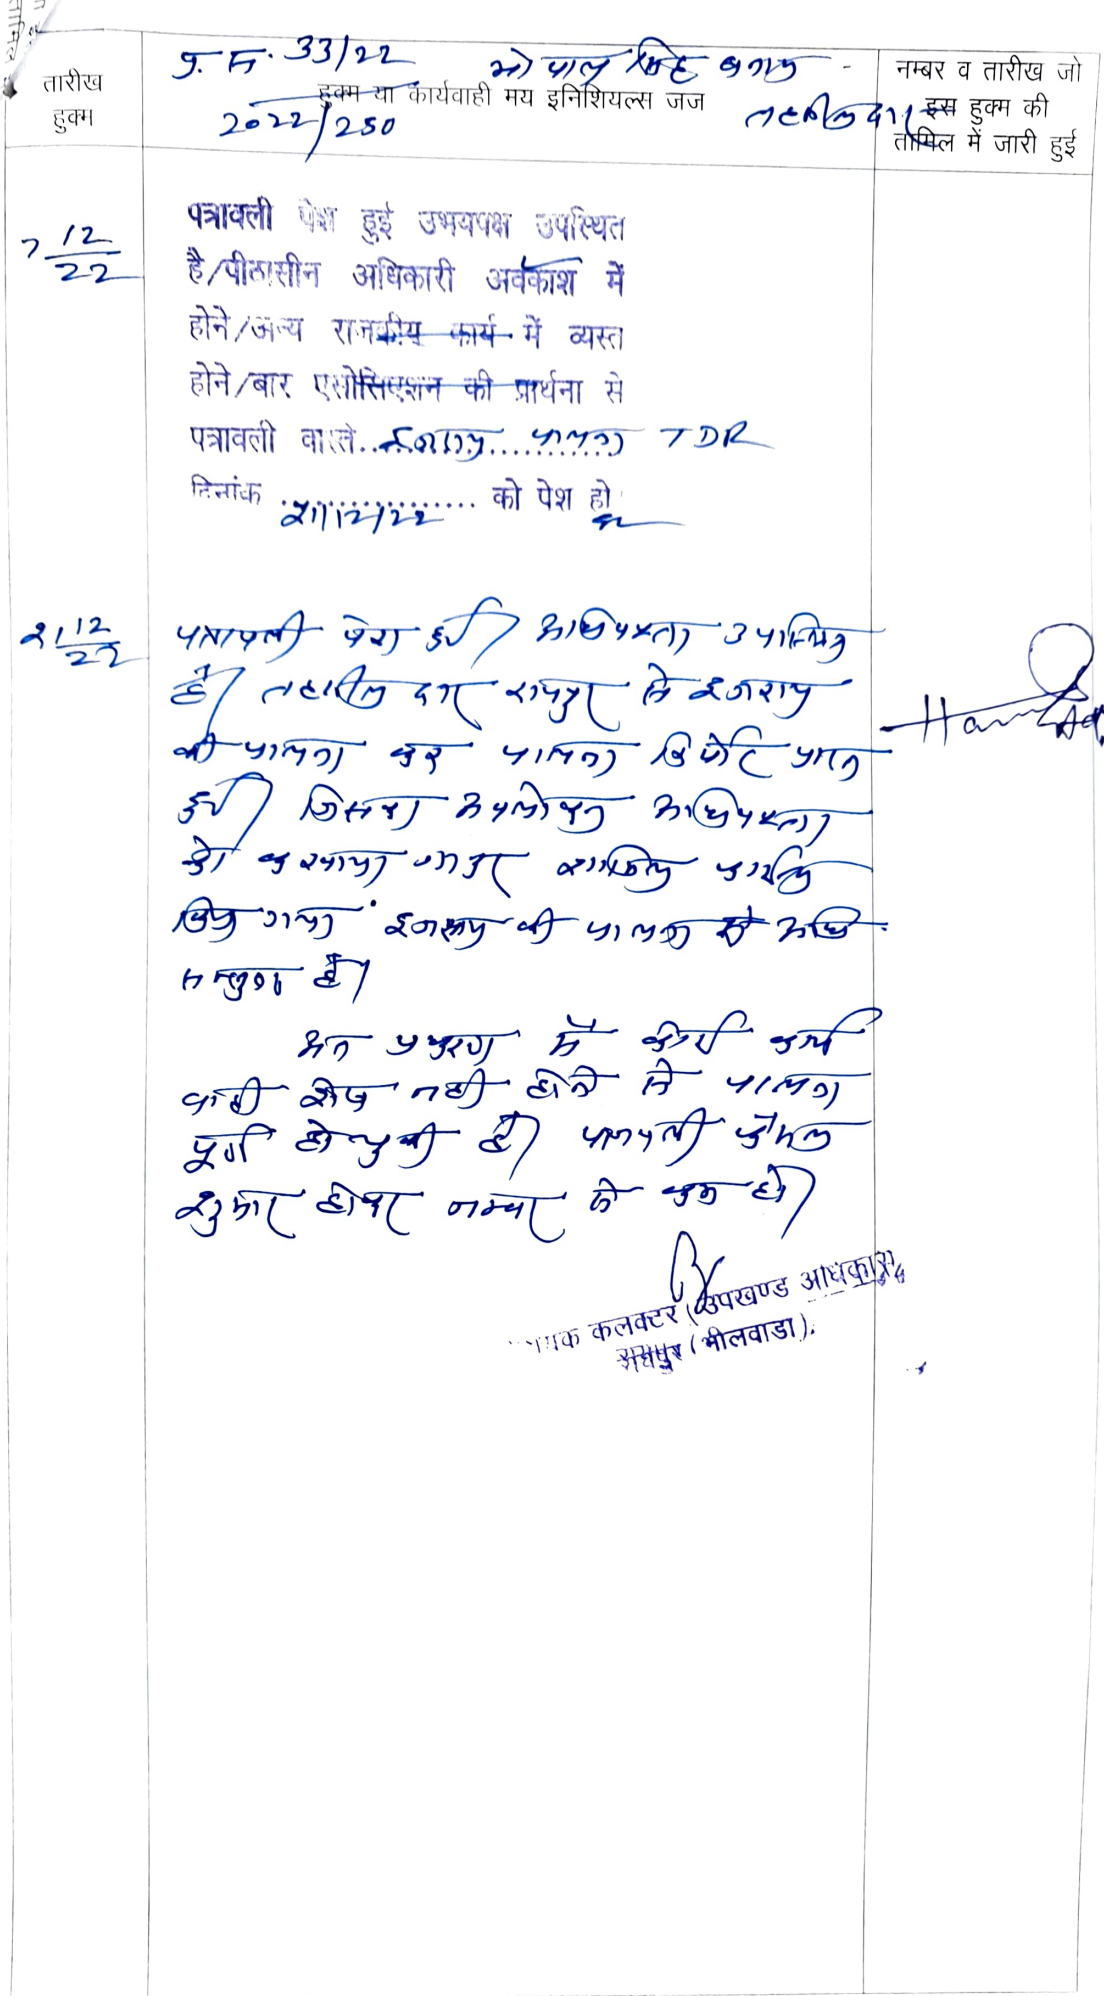 प्र. सं. 33/22 भोपाल सिंह बनाम
तारीख हुक्म
हुक्म या कार्यवाही मय इनिशियल्स जज
2022/250 तहसीलदार
नम्बर व तारीख जो
इस हुक्म की
तामिल में जारी हुई
7 12/22
पत्रावली पेश हुई उभयपक्ष उपस्थित
है/पीठासीन अधिकारी अवकाश में
होने/अन्य राजकीय कार्य में व्यस्त
होने/बार एसोसिएशन की प्रार्थना से
पत्रावली वास्ते इजराय पालना TDR
दिनांक 21/12/22 को पेश हो
21 12/22
पत्रावली पेश हुई। अधिवक्ता उपस्थित
है। तहसीलदार रायपुर से इजराय
की पालना कर पालना रिपोर्ट प्राप्त
हुई। जिसका अवलोकन अधिवक्ता
को करवाया जाकर शामिल
किया गया। इजराय की पालना से अधि.
सन्तुष्ट है।
अत प्रकरण में कोई कार्य
वाही शेष नही होने से पालना
पूर्ण हो चुकी है। पत्रावली फैसल
शुमार होकर नम्बर से कम हो।
कलक्टर (उपखण्ड अधिकारी)
रायपुर (भीलवाडा)